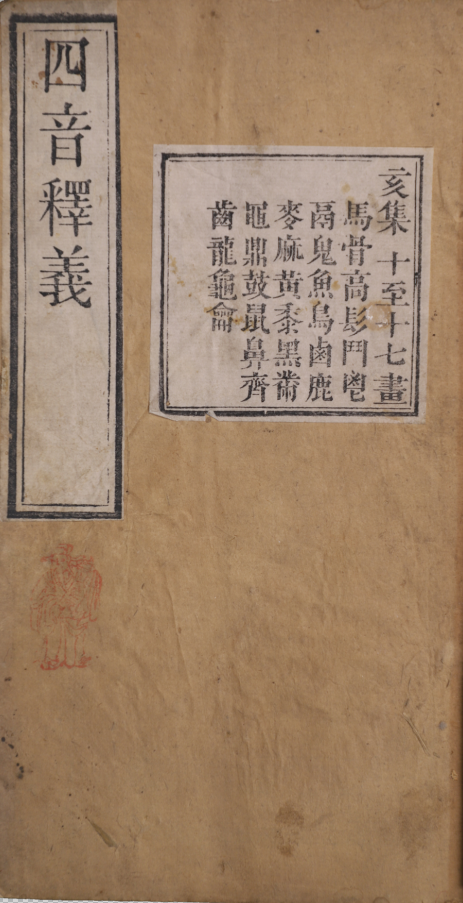 四音釋義
亥集 十至十七畫
馬骨高髟鬥鬯
鬲鬼魚鳥鹵鹿
麥麻黃黍黑黹
黽鼎鼓鼠鼻齊
齒龍龜龠